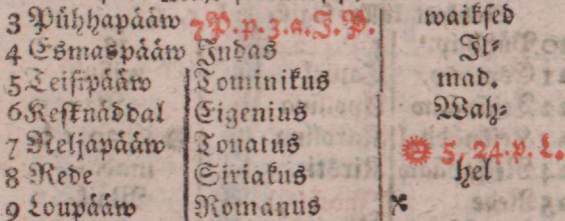 3 Pühhapääw 7 P. p. 3. a. J. P. waiksed
4 Esmaspääw Judas Il⸗
5 Teisipääw Tominikus mad.
6 Kesknäddal Eigenius Wah⸗
7 Neljapääw Tonatus 5, 24. p. L.
8 Rede Siriakus hel
9 Loupääw Romanus